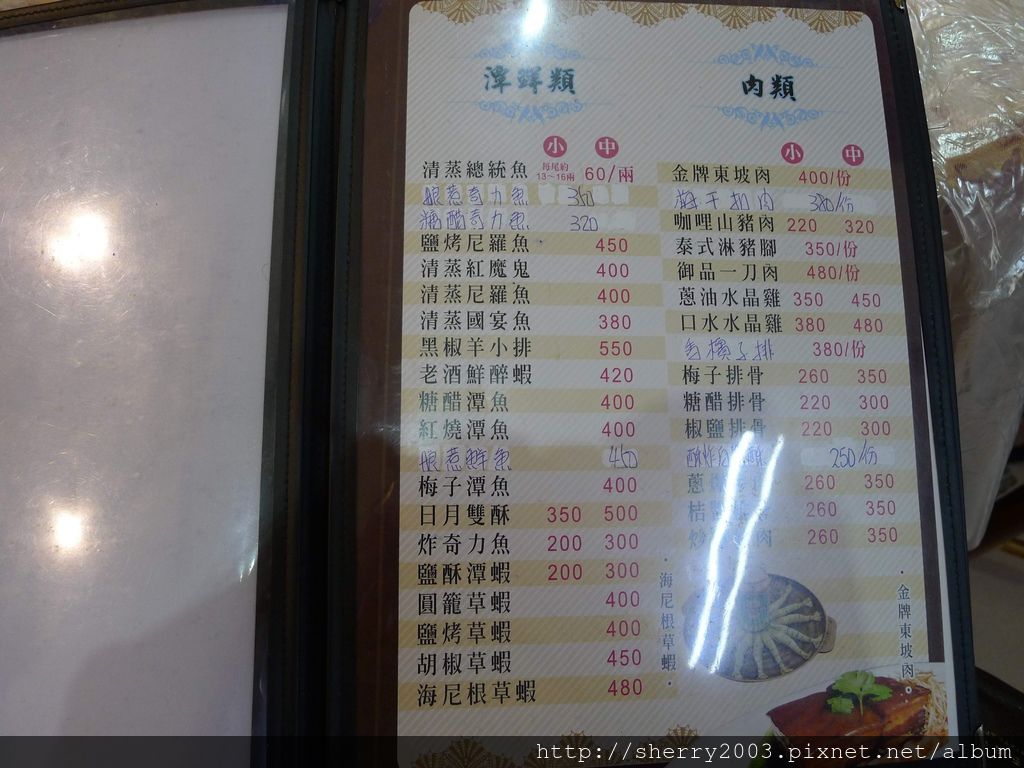 潭鮮類
小 中
清蒸總統魚 每尾約 13~16兩 60/兩
蔥奇力魚 350
糖醋奇力魚 320
鹽烤尼羅魚 450
清蒸紅魔鬼 400
清蒸尼羅魚 400
清蒸國宴魚 380
黑椒羊小排 550
老酒鮮醉蝦 420
糖醋潭魚 400
紅燒潭魚 400
鮮魚 450
梅子潭魚 400
日月雙酥 350 500
炸奇力魚 200 300
鹽酥潭蝦 200 300
圓籠草蝦 400
鹽烤草蝦 400
胡椒草蝦 450
海尼根草蝦 480
肉類
小 中
金牌東坡肉 400/份
梅干扣肉 380/份
咖哩山豬肉 220 320
泰式淋豬腳 350/份
御品一刀肉 480/份
蔥油水晶雞 350 450
口水水晶雞 380 480
香檳子排 380/份
梅子排骨 260 350
糖醋排骨 220 300
椒鹽排骨 220 300
酥炸 250/份
蔥 260 350
桔 260 350
炒 肉 260 350
·海尼根草蝦·
·金牌東坡肉。
http://sherry2003.pixnet.net/album